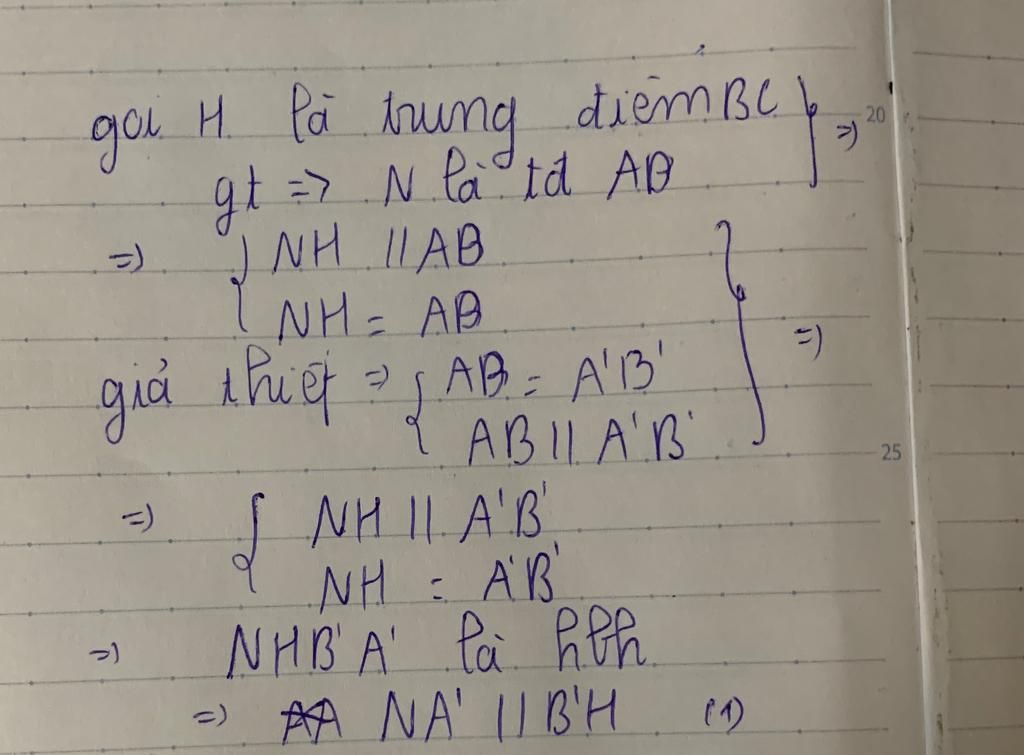 gọi H là trung điểm BC } =>
gt => N là tđ AB
=> { NH // AB
NH = AB }
giả thiết => { AB = A'B' =>
AB // A'B'
=> { NH // A'B'
NH = A'B'
=> NHB'A' là hbh
=> NA' // B'H (1)
20
25